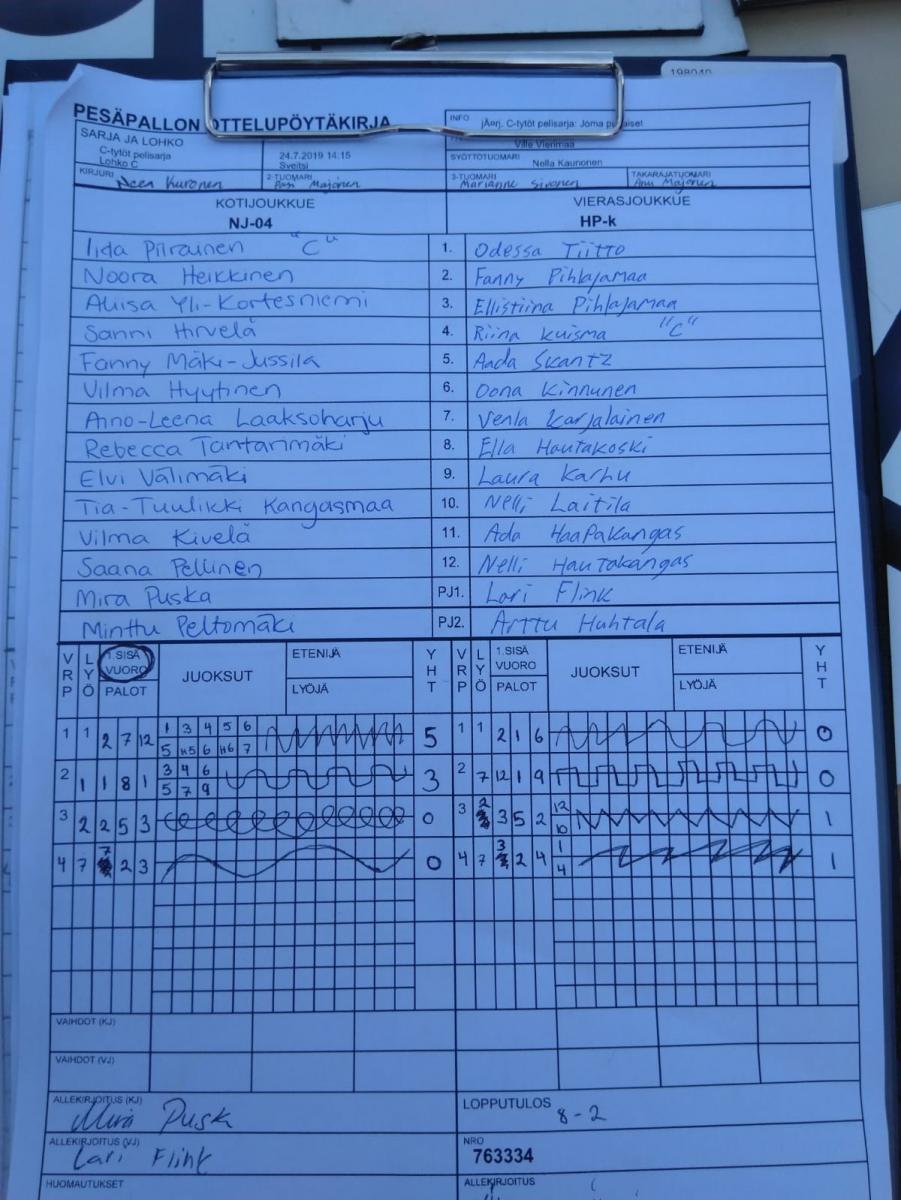 198040
PESÄPALLON OTTELUPÖYTÄKIRJA
INFO
SARJA JA LOHKO
C-tytöt pelisarja
Lohko C
24.7.2019 14:15
Sveitsi
jÄnrj. C-tytöt pelisarja: Joma pu
Ville Vierimaa
SYÖTTÖTUOMARI Nella Kaunonen
KIRJURI Kuronen
2-TUOMARI Majonen
3-TUOMARI Marianne Sironen
TAKARAJATUOMARI Anu Majonen
KOTIJOUKKUE VIERASJOUKKUE
NJ-04 HP-k
Iida Piirainen "C" 1. Odessa Tiitto
Noora Heikkinen 2. Fanny Pihlajamaa
Aliisa Yli-Kortesniemi 3. Ellistiina Pihlajamaa
Sanni Hirvelä 4. Riina Kuisma "C"
Fanny Mäki-Jussila 5. Aada Skantz
Vilma Hyytinen 6. Oona Kinnunen
Aino-Leena Laaksoharju 7. Venla Karjalainen
Rebecca Tantarimäki 8. Ella Hautakoski
Elvi Välimäki 9. Laura Karhu
Tia-Tuulikki Kangasmaa 10. Nelli Laitila
Vilma Kivelä 11. Ada Haapakangas
Saana Pellinen 12. Nelli Hautakangas
Mira Puska PJ1. Lari Flink
Minttu Peltomäki PJ2. Arttu Huhtala
VRP LYÖ 1.SISÄ VUORO PALOT JUOKSUT ETENIJÄ LYÖJÄ YHT VRP LYÖ 1.SISÄ VUORO PALOT JUOKSUT ETENIJÄ LYÖJÄ YHT
1 1 2 7 12 1 3 4 5 6 5 1 1 2 1 6 0
5 H5 6 H6 7
2 1 1 8 1 3 4 6 3 2 7 12 1 9 0
5 7 9
3 2 2 5 3 0 3 2 3 5 2 12 1
10
4 7 7 2 3 0 4 7 3 2 4 1 1
4
VAIHDOT (KJ)
VAIHDOT (VJ)
ALLEKIRJOITUS (KJ) Mira Pusk
LOPPUTULOS 8-2
ALLEKIRJOITUS (VJ) Lari Flink
NRO 763334
HUOMAUTUKSET
ALLEKIRJOITUS